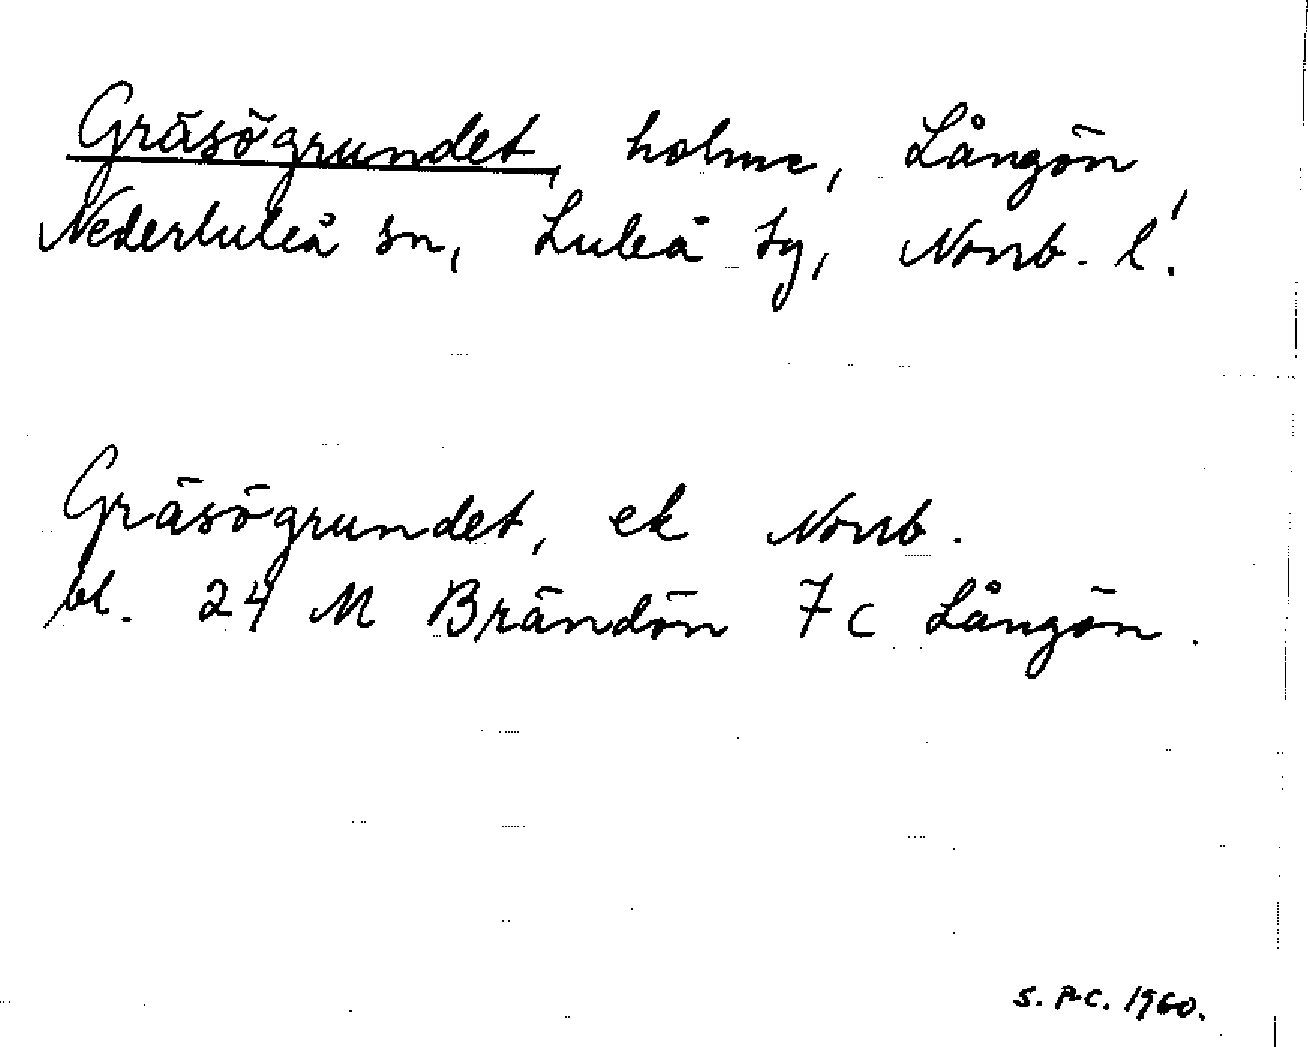 Gräsögrundet, holme, Långön,
Nederluleå sn, Luleå tg, Norrb. l.
Gräsögrundet, ek Norrb.
bl. 24 M Brändön 7c Långön.
S. P-C. 1960.